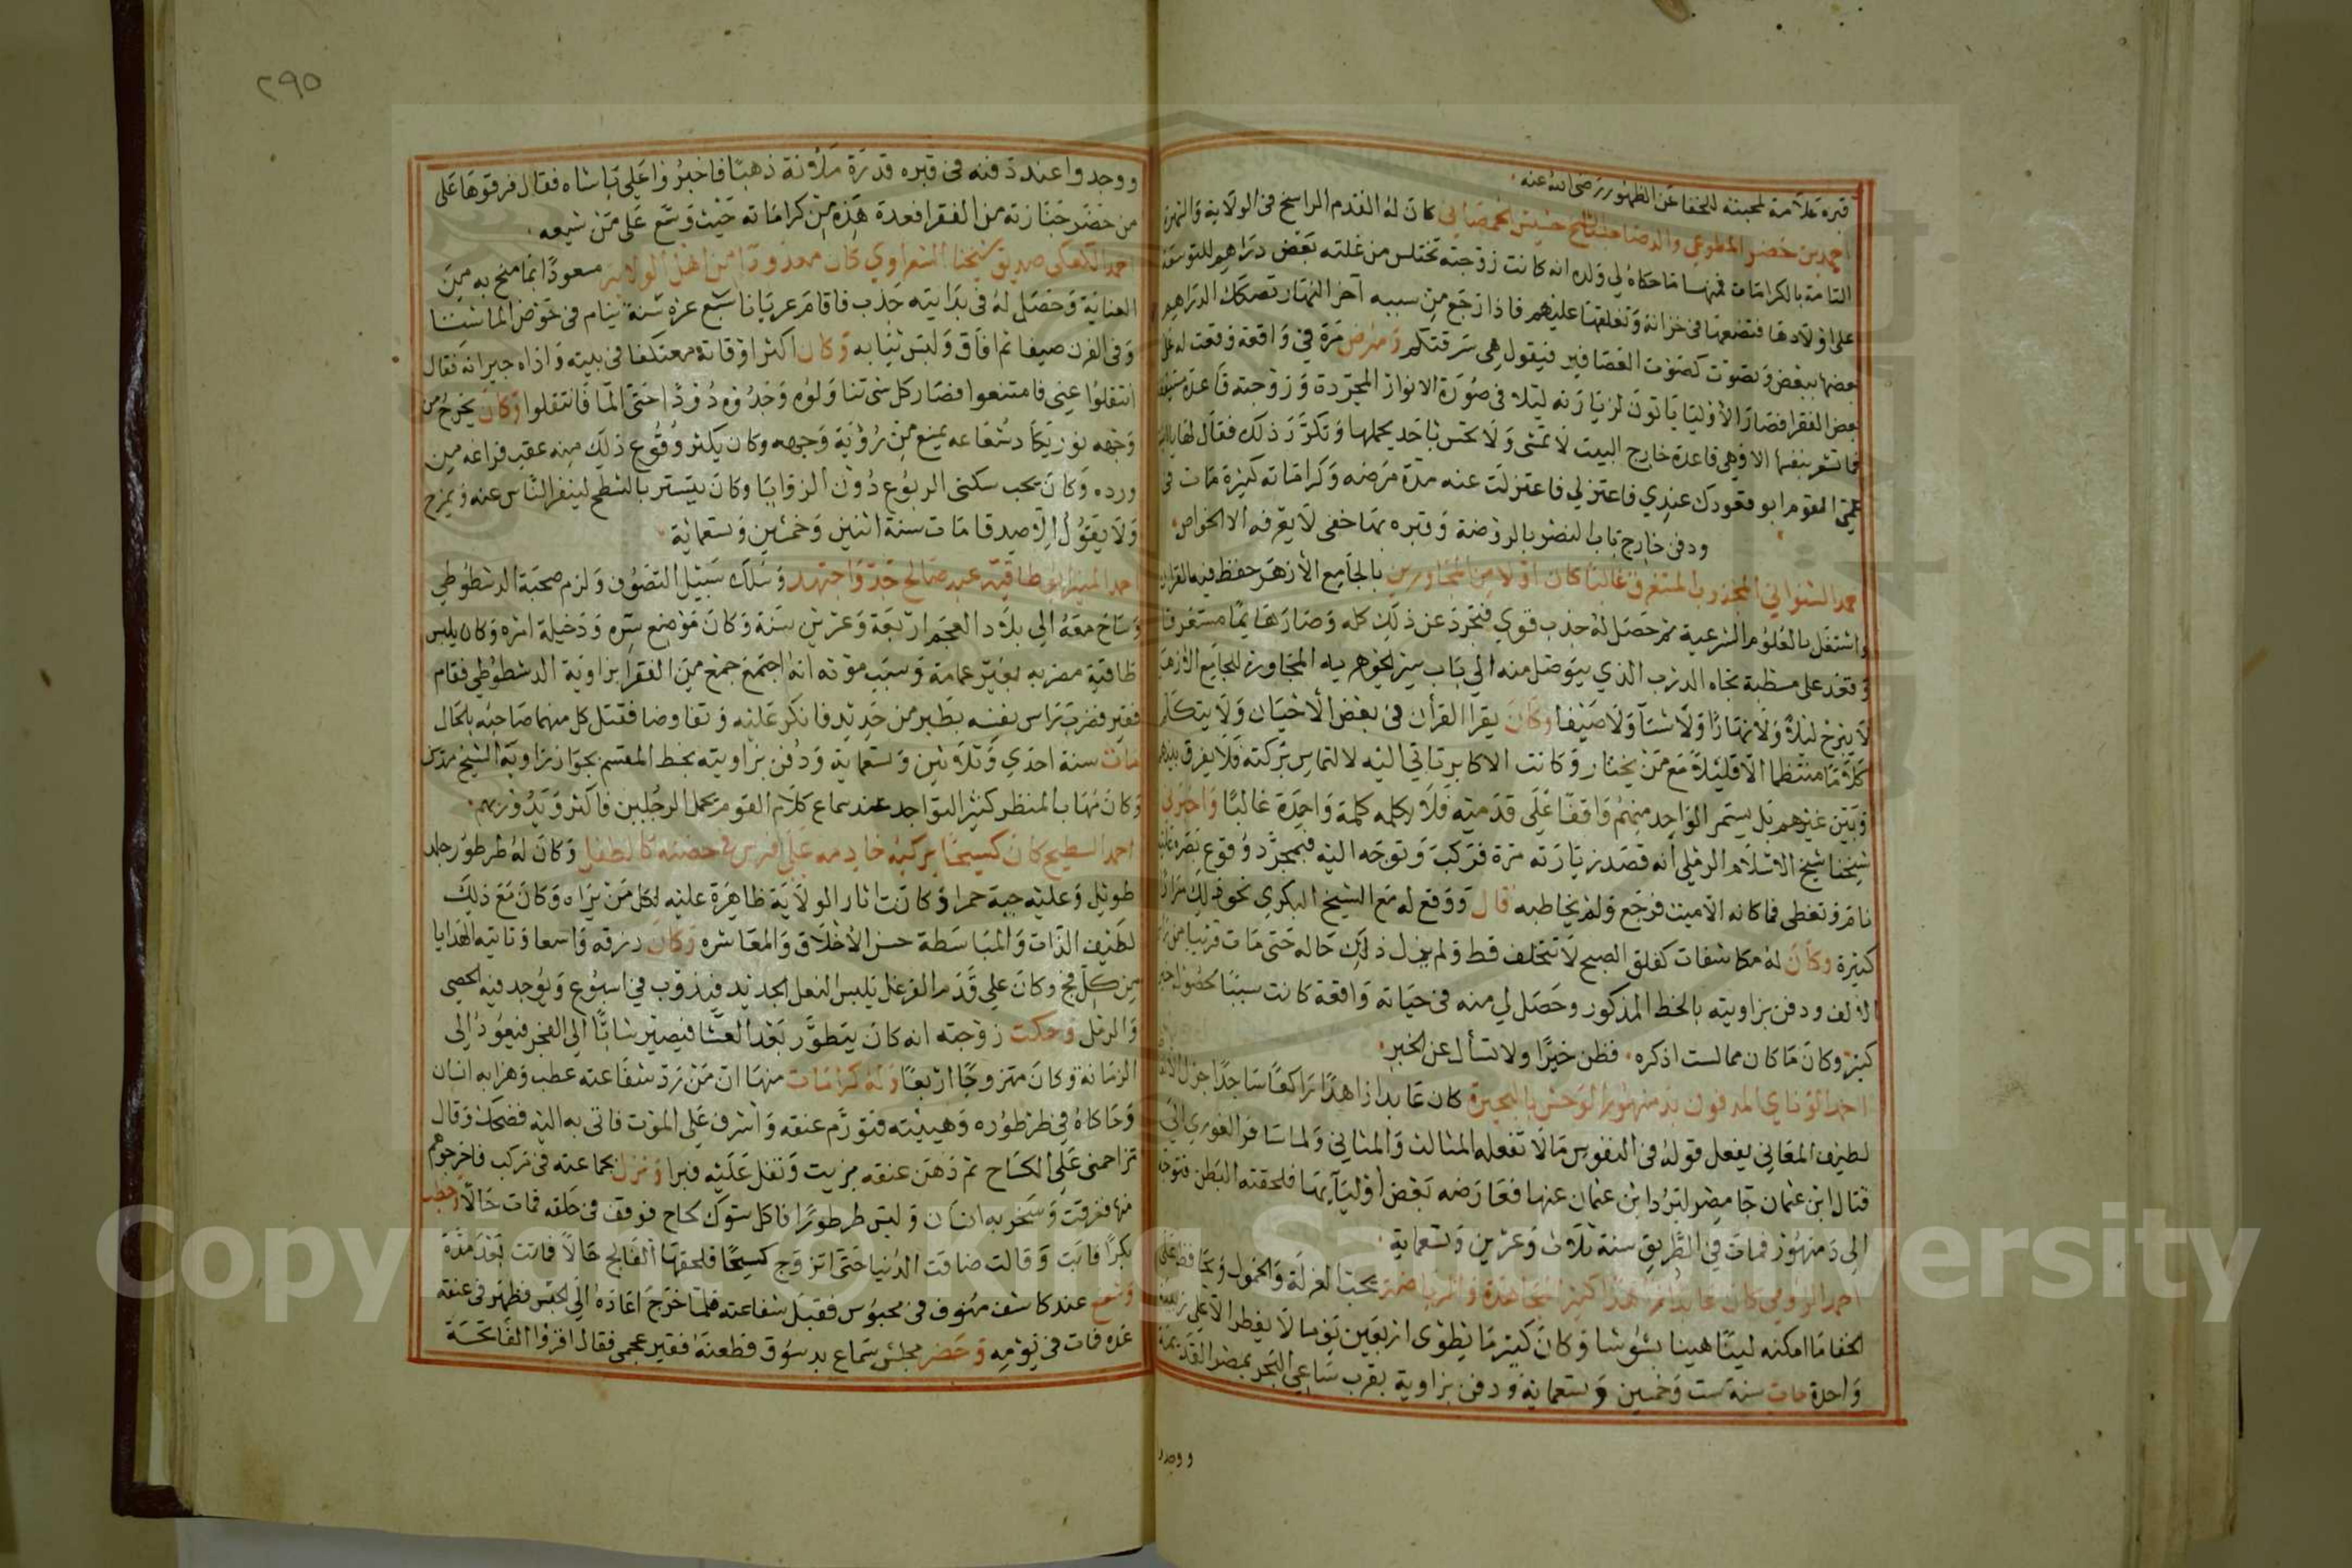 قبره علامة لمحبته للخفا عن الظهور رضى الله عنه
احمد بن خضر المطوعي كان له القدم الراسخ فى الولاية والشهرة
التامة بالكرامات فمنها ما حكاه لي ولده انه كانت زوجته تختلس من غلته بعض دراهم للتوسعة
على اولادها فتضعها فى خزانة وتغلقها عليهم فاذا رجع من سببه آخر النهار تصكك الدراهم
بعضها ببعض وتصوت كصوت العصافير فيقول هى سرقتكم ومرض مرة في واقعة وقعت له مع
بعض الفقرا فصار الاوليا ياتون لزيارته ليلا فى صورة الانوار المجردة وزوجته قاعدة
فما تشعر بنفسها الا وهى قاعدة خارج البيت لا تمشى ولا تحس باحد يحملها وتكرر ذلك فقال لها
القوم ابو قعودك عندي فاعتزلي فاعتزلت عنه مدة مرضه وكراماته كثيرة مات فى
ودفن خارج باب النصر بالروضة وقبره بها خفى لا يعرفه الا الخواص
احمد الشنواني المجذوب المستغرق غالبا كان اولا من المجاورين بالجامع الازهر حفظ فيه القران
واشتغل بالعلوم الشرعية ثم حصل له جذب قوي فتجرد عن ذلك كله وصار هائما مستغرقا
وقعد على مسطبة تجاه الدرب الذي يتوصل منه الي باب سر الجوهريه المجاورة للجامع الازهر
لا يبرح ليلا ولا نهارا ولا شتآ ولا صيفا وكان يقرا القرأن فى بعض الأحيان ولا يتكلم
كلاما منتظما الا قليلا مع من يختار وكانت الاكابر تاتي اليه لالتماس بركته فلا يفرق بينهم
وبين غيرهم بل يستمر الواحد منهم واقفا على قدميه فلا يكلمه كلمة واحدة غالبا واخبرني
شيخنا شيخ الاسلام الرملي أنه قصد زيارته مرة فركب وتوجه اليه فبمجرد وقوع بصره عليه
نام وتغطى فما كانه الا ميت فرجع ولم يخاطبه قال ووقع له مع الشيخ البكري نحو ذلك مرارا
كثيرة وكان له مكاشفات كفلق الصبح لا تتخلف قط ولم يزل ذلك حاله حتى مات قريبا من
الالف ودفن بزاويته بالخط المذكور وحصل لي منه فى حياته واقعة كانت سببا لحصول خير
كبير وكان ما كان مما لست اذكره فظن خيرا ولا تسأل عن الخبر
احمد الزناي المدفون بدمنهور الوحش بالبحيرة كان عابدا زاهدا راكعا ساجدا جزل الالفاظ
لطيف المعاني يفعل قوله فى النفوس ما لا تفعله المثالث والمثاني ولما سافر الغوري الي
قتال ابن عثمان جا مصر ليرد ابن عثمان عنها فعارضه بعض أوليآيها فلحقته البطن فتوجه
الى دمنهور فمات في الطريق سنة ثلاث وعشرين وتسعماية
احمد الرومي كان عابدا زاهدا كثير المجاهدة والرياضة يحب العزلة والخمول ويحافظ على
الخفا ما امكنه لينا هينا بشوشا وكان كثيرا ما يطوى اربعين يوما لا يفطر الا على زبيبة
واحدة مات سنة ست وخمسين وتسعماية ودفن بزاوية بقرب ساعي البحر بمصر القديمة
ووجدو
٢٩٥
ووجدوا عند دفنه فى قبره قدرة ملأونة ذهبا فاخبروا على باشاه فقال فرقوها على
من حضر جنازته من الفقرا فعدة هذه من كراماته حيث وسع على من شيعه
احمد الكعكى صديق شيخنا الشعراوي كان معدودا من اهل الولاية مسعودا بما منح به من
العناية وحصل له فى بدايته جذب فاقام عريانا سبع عشرة سنة ينام فى حوض الما شتا
وفى الفرن صيفا ثم افاق ولبس ثيابه وكان اكثر اوقاته معتكفا فى بيته واذاه جيرانه فقال
انتقلوا عني فامتنعوا فصار كل شى تناولوه وجدوه دودا حتى الما فانتقلوا وكان يخرج من
وجهه نور يكاد شعاعه يمنع من رؤية وجهه وكان يكثر وقوع ذلك منه عقب فراغه من
ورده وكان يحب سكنى الربوع دون الزوايا وكان يتستر بالشطح لينفر الناس عنه ويمزح
ولا يقول الا صدقا مات سنة اثنين وخمسين وتسعماية
احمد المنير ابو طاقية عبد صالح جد واجتهد وسلك سبيل التصوف ولزم صحبة الدشطوطي
وساح معه الي بلاد العجم اربعة وعشرين سنة وكان موضع سره ودخيلة امره وكان يلبس
طاقية مضربه بغير عمامة وسبب موته انه اجتمع جمع من الفقرا بزاوية الدشطوطي فقام
فقير فضرب راس نفسه بطبر من حديد فانكر عليه وتفاوضا فقتل كل منهما صاحبه بالحال
مات سنة احدي وثلاثين وتسعماية ودفن بزاويته بخط المقسم بجوار زاوية الشيخ مدين
وكان مهاب المنظر كثير التواجد عند سماع كلام القوم يحمل الرجلين فاكثر ويدور بهم
احمد السطيح كان كسيحا يركبه خادمه على فرس في حضنه كالطفل وكان له طرطور جلد
طويل وعليه جبة حمرا وكانت اثار الولاية ظاهرة عليه لكل من يراه وكان مع ذلك
لطيف الذات والمباسطة حسن الأخلاق والمعاشره وكان رزقه واسعا وتاتيه الهدايا
من كل فج وكان على قدم الفرغل يلبس النعل الجديد فيذوب في اسبوع ويوجد فيه الحصى
والرمل وحكت زوجته انه كان يتطور بعد العشا فيصير شابا الي الفجر فيعود الى
الزمانة وكان متزوجا اربعا وله كرامات منها ان من رد شفاعته عطب وهزا به انسان
وحاكاه فى طرطوره وهيبته فتورم عنقه واشرف على الموت فاتى به اليه فضحك وقال
تزاحمنى على الكساح ثم دهن عنقه بزيت وتفل عليه فبرا ونزل بجماعته فى مركب فاخرجوهم
منها فغرقت وسخر به انسان ولبس طرطورا فاكل سوك كحاح فوقف فى حلقه فمات حالا وخطب
بكرا فابت وقالت ضاقت الدنيا حتى اتزوج كسيحا فلحقها الفالج حالا فماتت بعد مدة
وشفع عند كاشف منوف فى محبوس فقبل شفاعته فلما خرج اعاده الى الحبس فظهر فى عنقه
غده فمات فى يومه وحضر مجلس سماع بدسوق فطعنه فقير عجمي فقال اقروا الفاتحة
Copyright © King Saud University